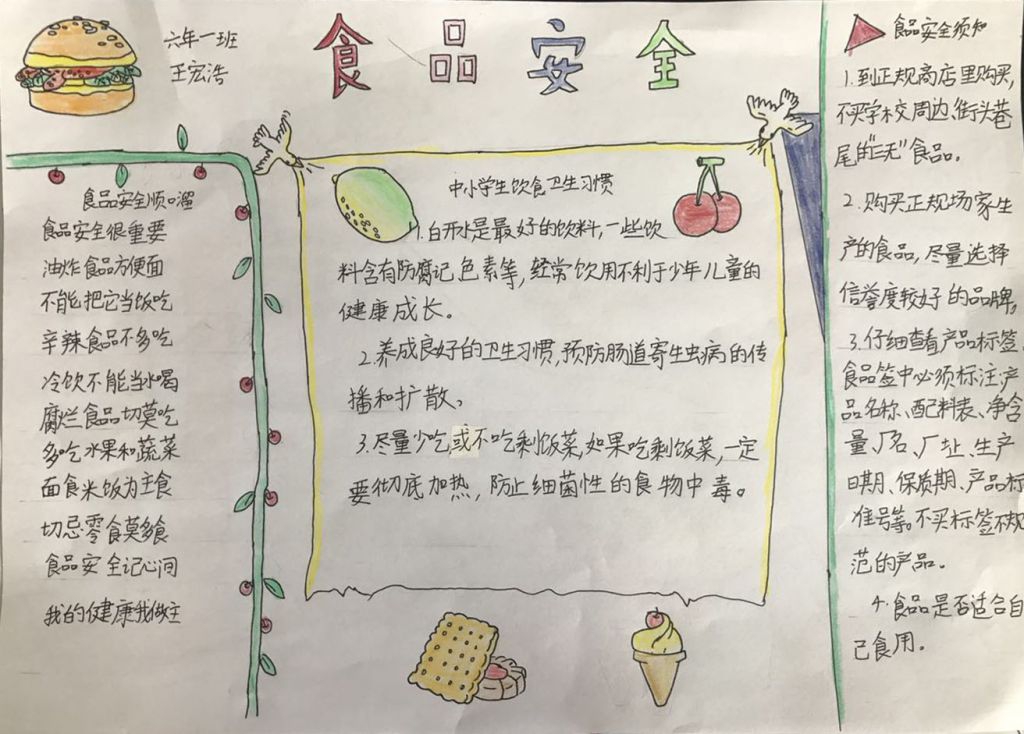 食品安全
六年一班
王宏浩
食品安全顺口溜
食品安全很重要
油炸食品方便面
不能把它当饭吃
辛辣食品不多吃
冷饮不能当水喝
腐烂食品切莫吃
多吃水果和蔬菜
面食米饭为主食
切忌零食莫多食
食品安全记心间
我的健康我做主
中小学生饮食卫生习惯
1.白开水是最好的饮料,一些饮
料含有防腐记色素等,经常饮用不利于少年儿童的
健康成长。
2.养成良好的卫生习惯,预防肠道寄生虫病的传
播和扩散、
3.尽量少吃或不吃剩饭菜,如果吃剩饭菜,一定
要彻底加热,防止细菌性的食物中毒。
食品安全须知
1.到正规商店里购买,
不买学校周边、街头巷
尾的"三无"食品。
2.购买正规场家生
产的食品,尽量选择
信誉度较好的品牌,
3.仔细查看产品标签。
食品签中必须标注:产
品名称、配料表、净含
量、厂名、厂址、生产
日期、保质期、产品标
准号等。不买标签不规
范的产品。
4.食品是否适合自
己食用。